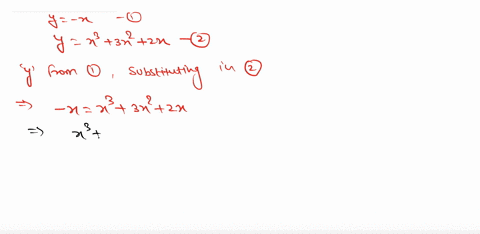 y = -x — ①
y = x³ + 3x² + 2x — ②
'y' from ①, substituting in ②
⇒ -x = x³ + 3x² + 2x
⇒ x³ +